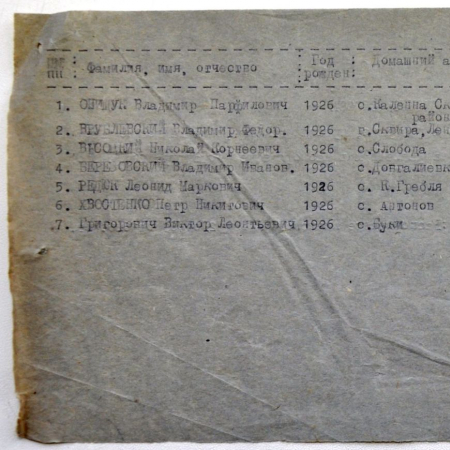 №№ : Фамилия, имя, отчество : Год : Домашний а
пп : рожден:
1. Владимир Парфилович 1926 с.Калеина Ск
район
2. ВРУБЛЕВСКИЙ Владимир Федор. 1926 Сквира,
3. ВЫСОЦКИЙ Николай Корнеевич 1926 с.Слобода
4. БЕРЕЗОВСКИЙ Владимир Иванов. 1926 с.Донгалиевк
5. РЕДЬК Леонид Маркович 1926 с. К.Гребля
6. ХВОСТЕНКО Петр Никитович 1926 с. Антонов
7. Григорович Виктор Леонтьевич 1926 с.Буки